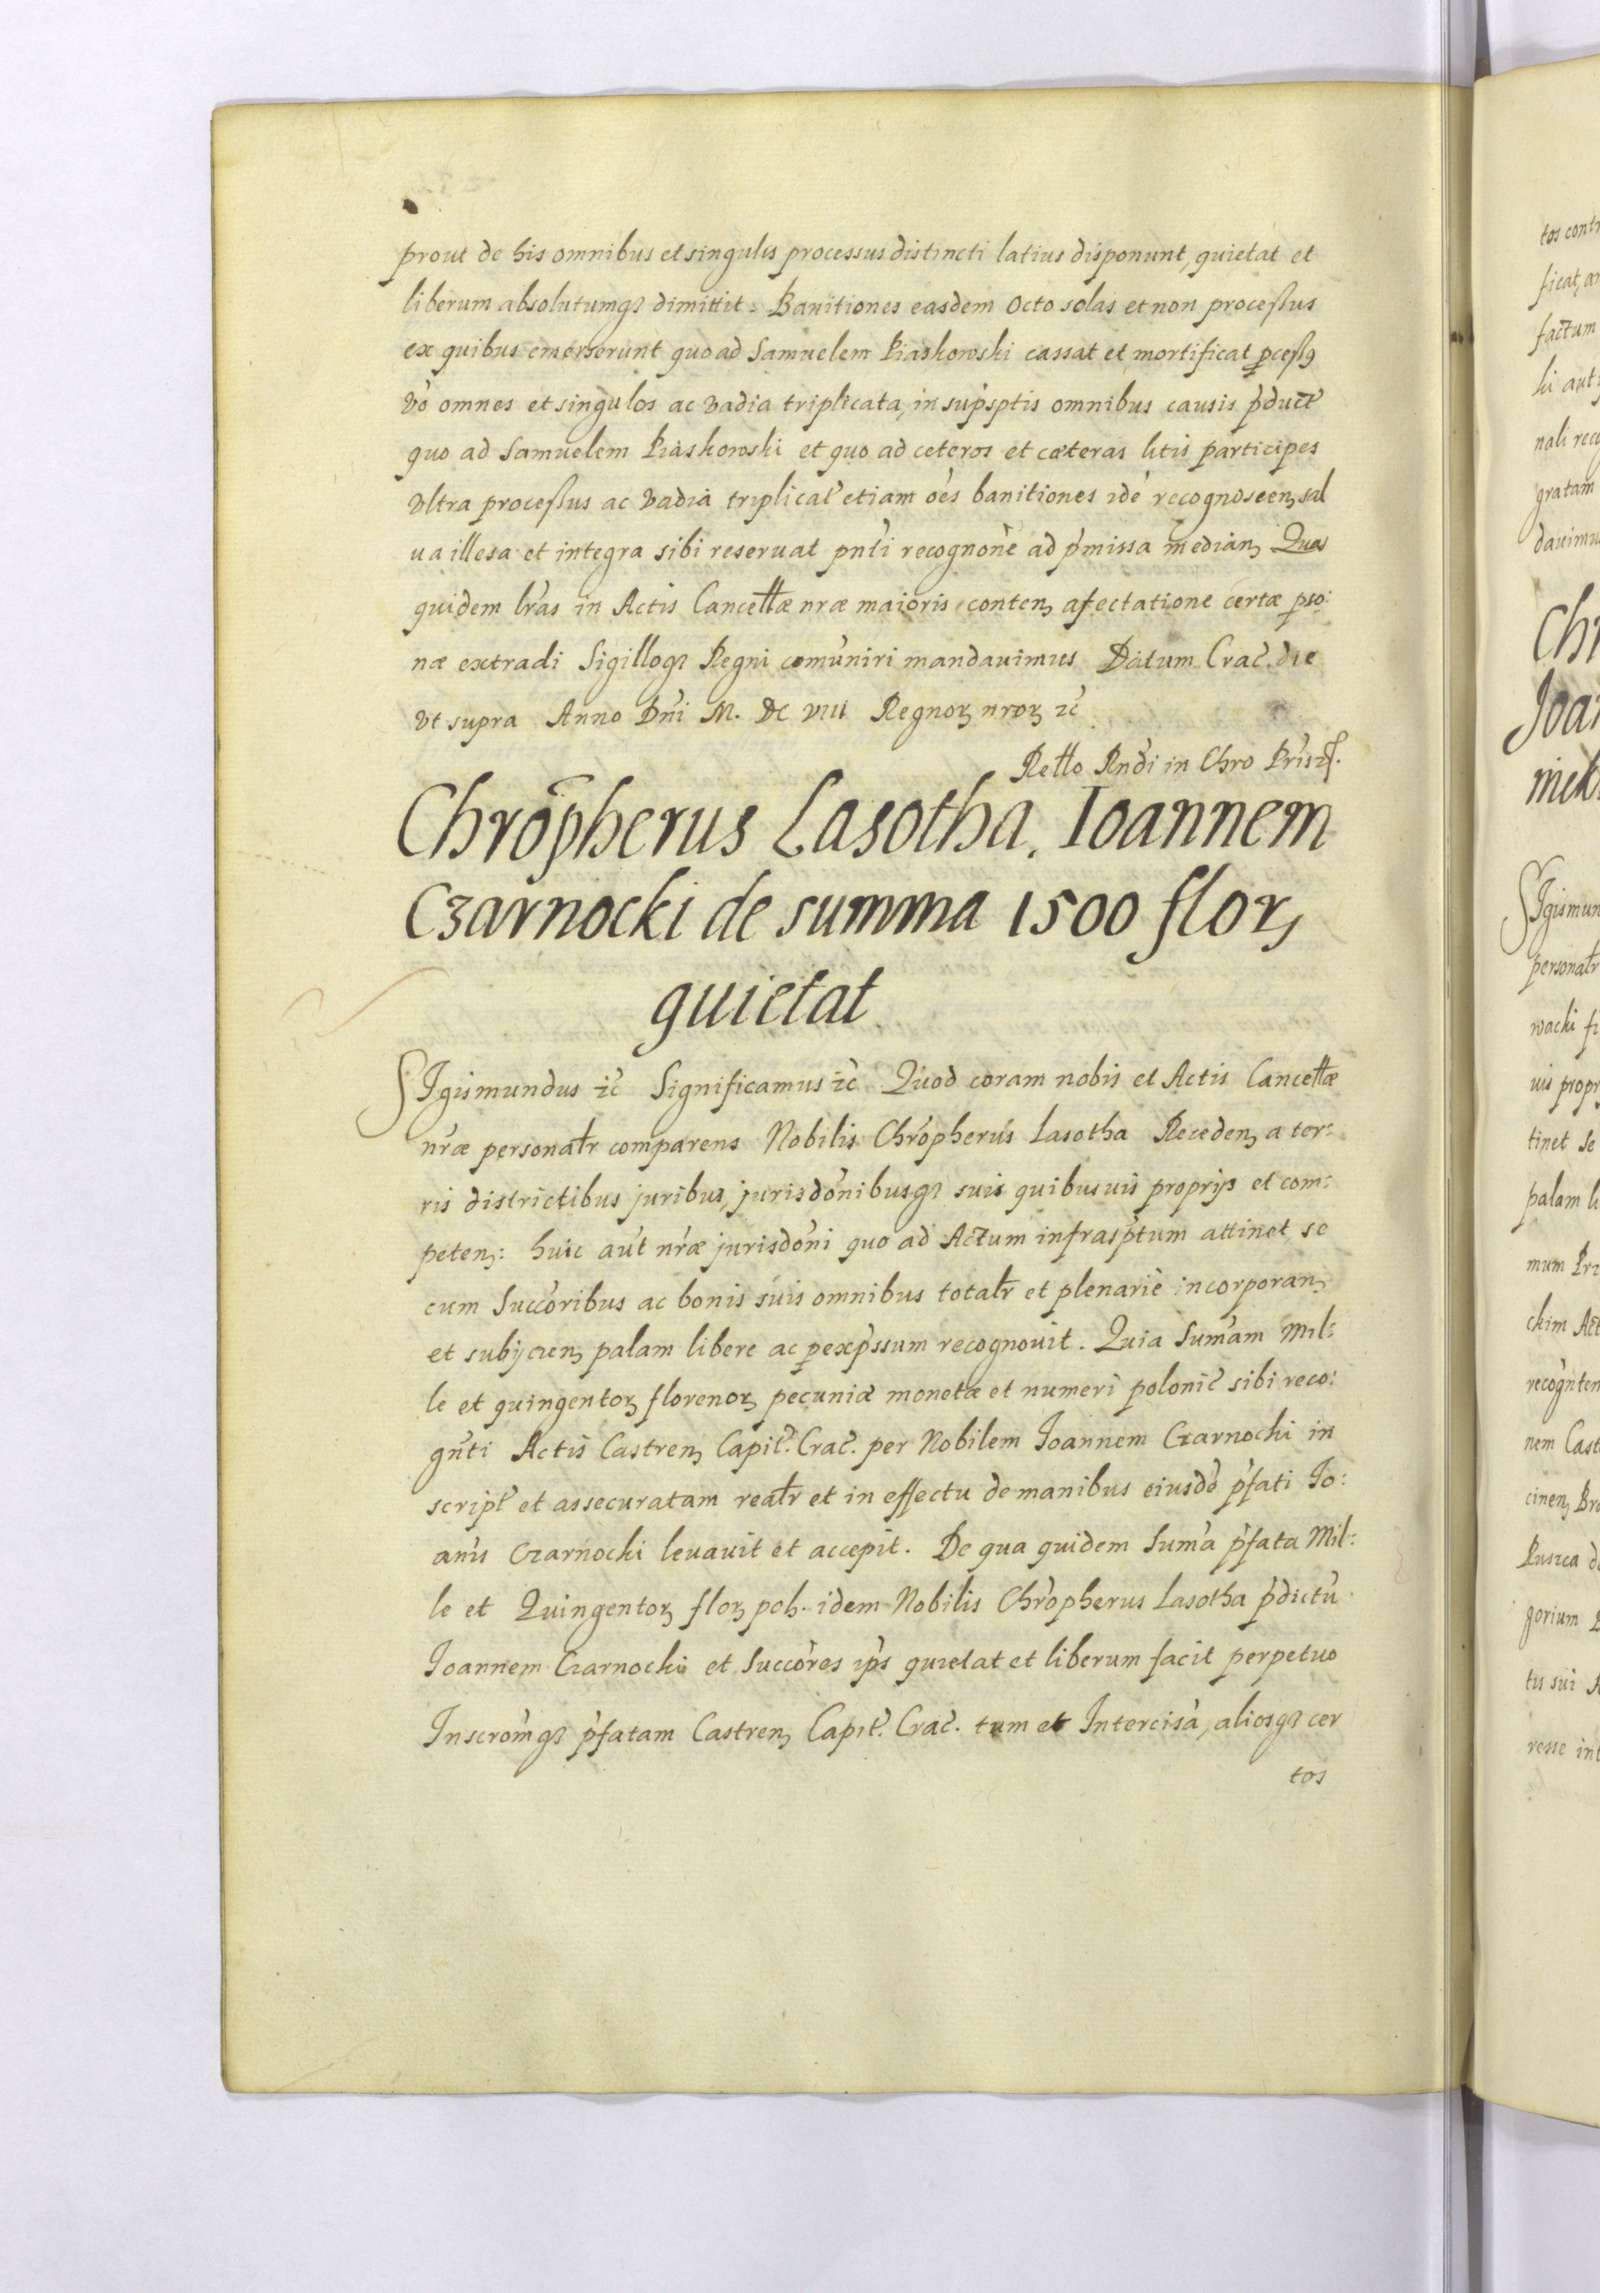 prout de his omnibus et singulis processus distincti latius disponunt, quietat et
liberum absolutumqȝ dimittit. Banitiones easdem octo solas et non processus
ex quibus emerserunt quo ad Samuelem Piaskowski cassat et mortificat ꝓcessꝯ
vo omnes et singulos ac vadia triplicata, in supsptis omnibus causis pduct
quo ad Samuelem Piaskowski et quo ad ceteros et cæteras litis participes
vltra processus ac vadia triplicat etiam oes banitiones ide recognoscenȝ sal
ua illesa et integra sibi reseruat pnti recognone ad pmissa medianȝ Quas
quidem lras in Actis Cancellæ nræ maioris contenȝ afectatione certæ pso:
næ extradi Sigilloqȝ Regni comuniri mandauimus Datum Crac. die
vt supra Anno Dni M. DC VIII Regnorȝ nrorȝ ꝛc
Rello Rndi in Chro Pris ꝛc.
Chropherus Lasotha. Ioannem
Czarnocki de summa 1500 florȝ
quietat.
SIgismundus ꝛc Significamus ꝛc Quod coram nobis et Actis Cancellæ
nræ personalr comparens Nobilis Chropherus Lasotha Recedenȝ a ter:
ris districtibus juribus, jurisdonibusqȝ suis quibusuis proprijs et com:
petenȝ: huic aut nræ jurisdoni quo ad Actum infrasptum attinet, se
cum Succoribus ac bonis suis omnibus totalr et plenarie incorporanȝ
et subijcienȝ palam libere ac ꝑ expssum recognouit. Quia Sumam Mil:
le et quingentorȝ florenorȝ pecuniæ monetæ et numeri polonic sibi reco:
gnti Actis Castrenȝ Capit. Crac. per Nobilem Joannem Czarnocki in
script et assecuratam realr et in effectu de manibus eiusde pfati Jo:
anis Czarnocki leuauit et accepit. De qua quidem Suma pfata Mil:
le et Quingentorȝ florȝ pol. idem Nobilis Chropherus Lasotha pdictu
Joannem Czarnocki et Succores ips quietat et liberum facit perpetuo
Inscromqȝ pfatam Castrenȝ Capit. Crac. tum et Intercisa, aliosqȝ cer
tos